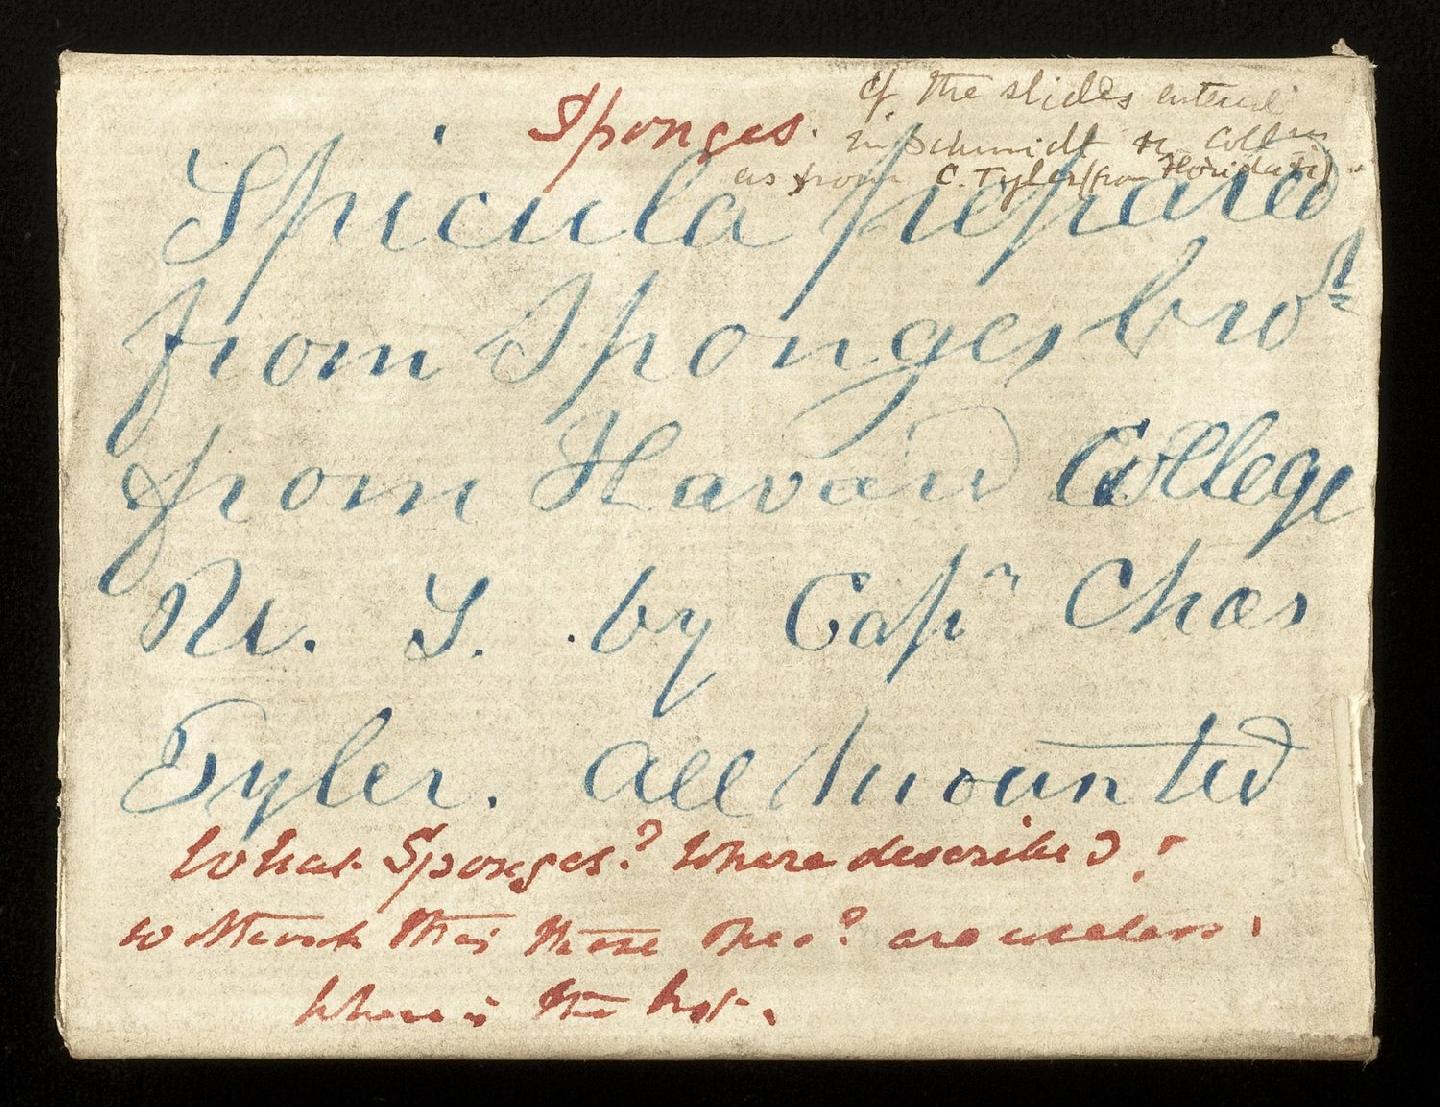 Sponges.
cf the slides entered
in Schmidt Coll
as from C. Tyler (from Florida)
Spicula prepared
from Sponges bro^t
from Havard College
N. S. by Cap^n Chas
Tyler. all mounted
What Sponges? Where described?
without this these are useless
Where is the list.